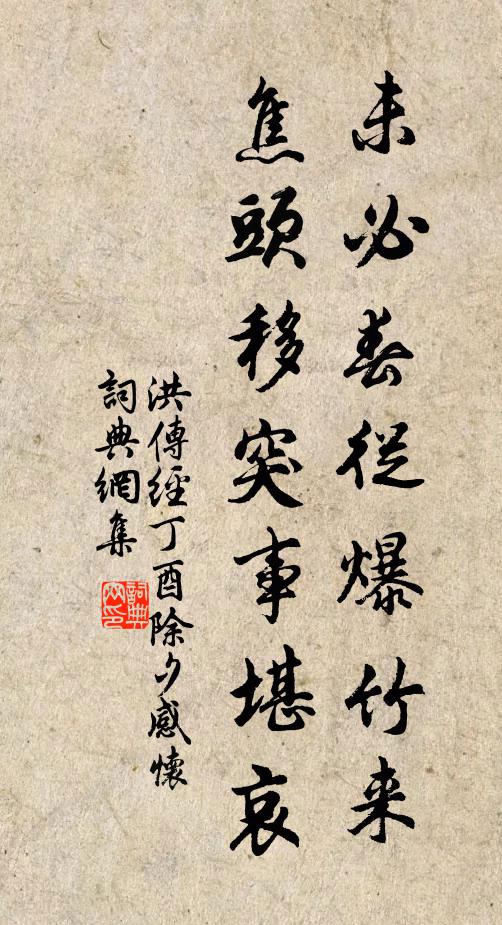 未必春從爆竹来
焦頭移突事堪哀
洪傳經丁酉除夕感懷
詞典網集
詞典網印